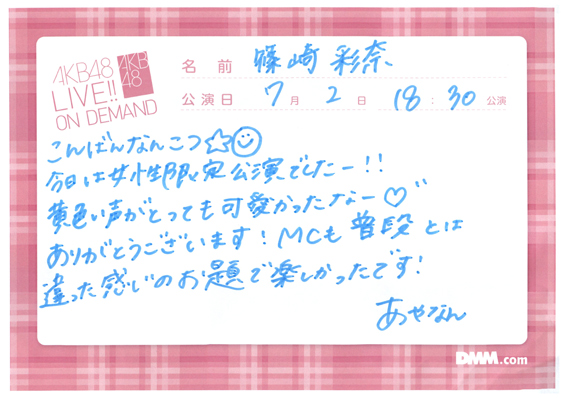 AKB48
LIVE!!
ON DEMAND
AKB
48
名前 篠崎彩奈
公演日 7月2日 18:30公演
こんばんなんこつ☆☺
今日は女性限定公演でしたー!!
黄色い声がとっても可愛かったなー♡
ありがとうございます!MCも普段とは
違った感じのお題で楽しかったです!
あやなん
DMM.com